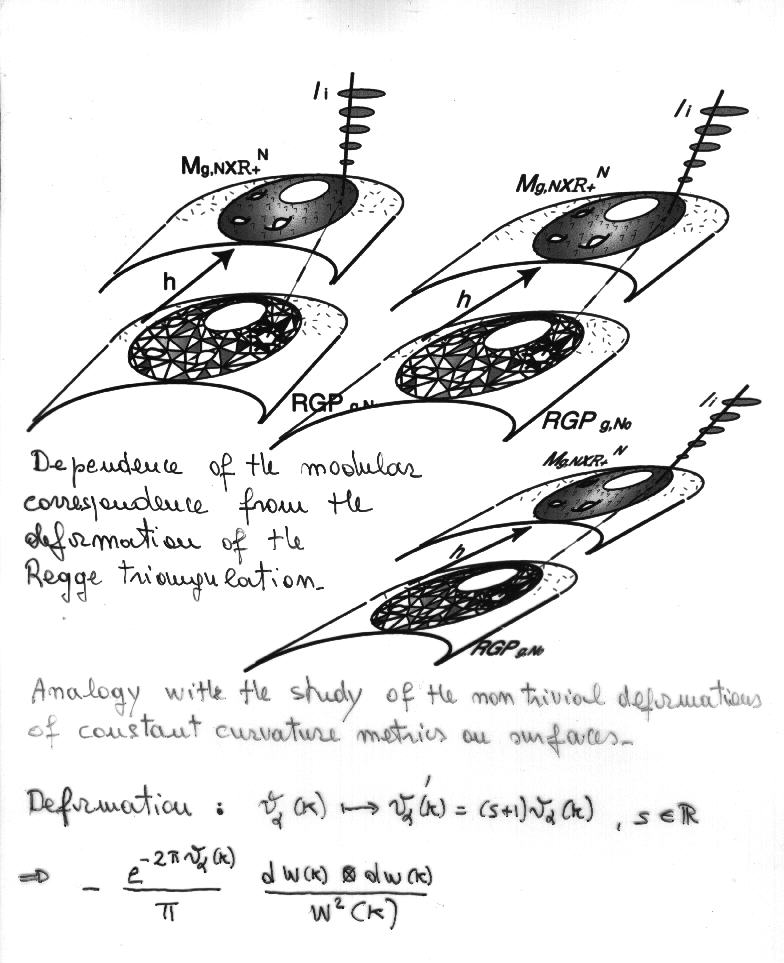 li
M g,N X R+ N
h
RGP g,N
li
M g,N X R+ N
h
RGP g,No
li
M g,N X R+ N
h
RGP g,No
Dependence of the modular
correspondence from the
deformation of the
Regge triangulation_
Analogy with the study of the non trivial deformations
of constant curvature metrics on surfaces_
Deformation : ϑ_α(k) ⟼ ϑ'_α(k) = (s+1)ϑ_α(k) , s ∈ ℝ
⇒ - e^{-2π ϑ_α(k)} / π  dw(k) ⊗ dw(k) / w²(k)